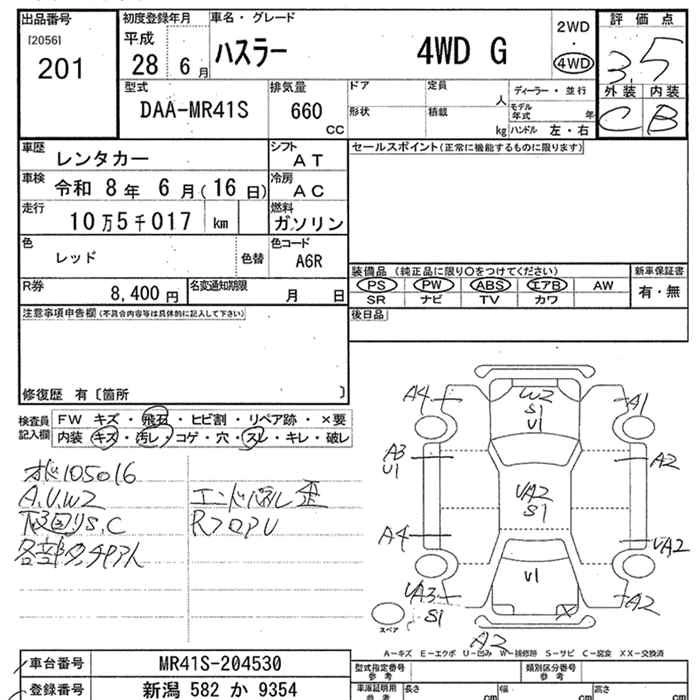 出品番号 初度登録年月 車名・グレード 評価点
[2056] 平成 2WD
201 28 6月 ハスラー 4WD G ・ 3.5
4WD
型式 排気量 ドア 定員 人 ディーラー・並行 外装 内装
DAA-MR41S 660 CC 形状 積載 kg モデル年式 年 C B
ハンドル 左・右
車歴 レンタカー シフト AT セールスポイント(正常に機能するものに限ります)
車検 令和 8年 6月(16日) 冷房 AC
走行 10万5千017 km 燃料 ガソリン
色 レッド 色替 色コード A6R
装備品 (純正品に限り○をつけてください) 新車保証書
R券 8,400円 名変通知期限 月 日 PS PW ABS エアB AW 有・無
SR ナビ TV カワ
注意事項申告欄(不具合内容等は具体的に記入して下さい) 後日品
修復歴 有〔箇所 〕
検査員記入欄 FW キズ・飛石・ヒビ割・リペア跡・×要
内装 キズ・汚レ・コゲ・穴・スレ・キレ・破レ
105016
A.U.W2 エンドパネル歪
下回りS.C RフロアU
各部
A4 W2 S1 U1 A1
A3 U1 A2
UA2 S1
A4 UA2
U1
UA3 S1 X A2
スペア
A2
A-キズ E-エクボ U-凹み W-補修跡 S-サビ C-腐変 XX-交換済
車台番号 MR41S-204530 型式指定番号 参考 類別区分番号 参考
登録番号 新潟 582 か 9354 車庫証明用 参考 長さ cm 幅 cm 高さ cm